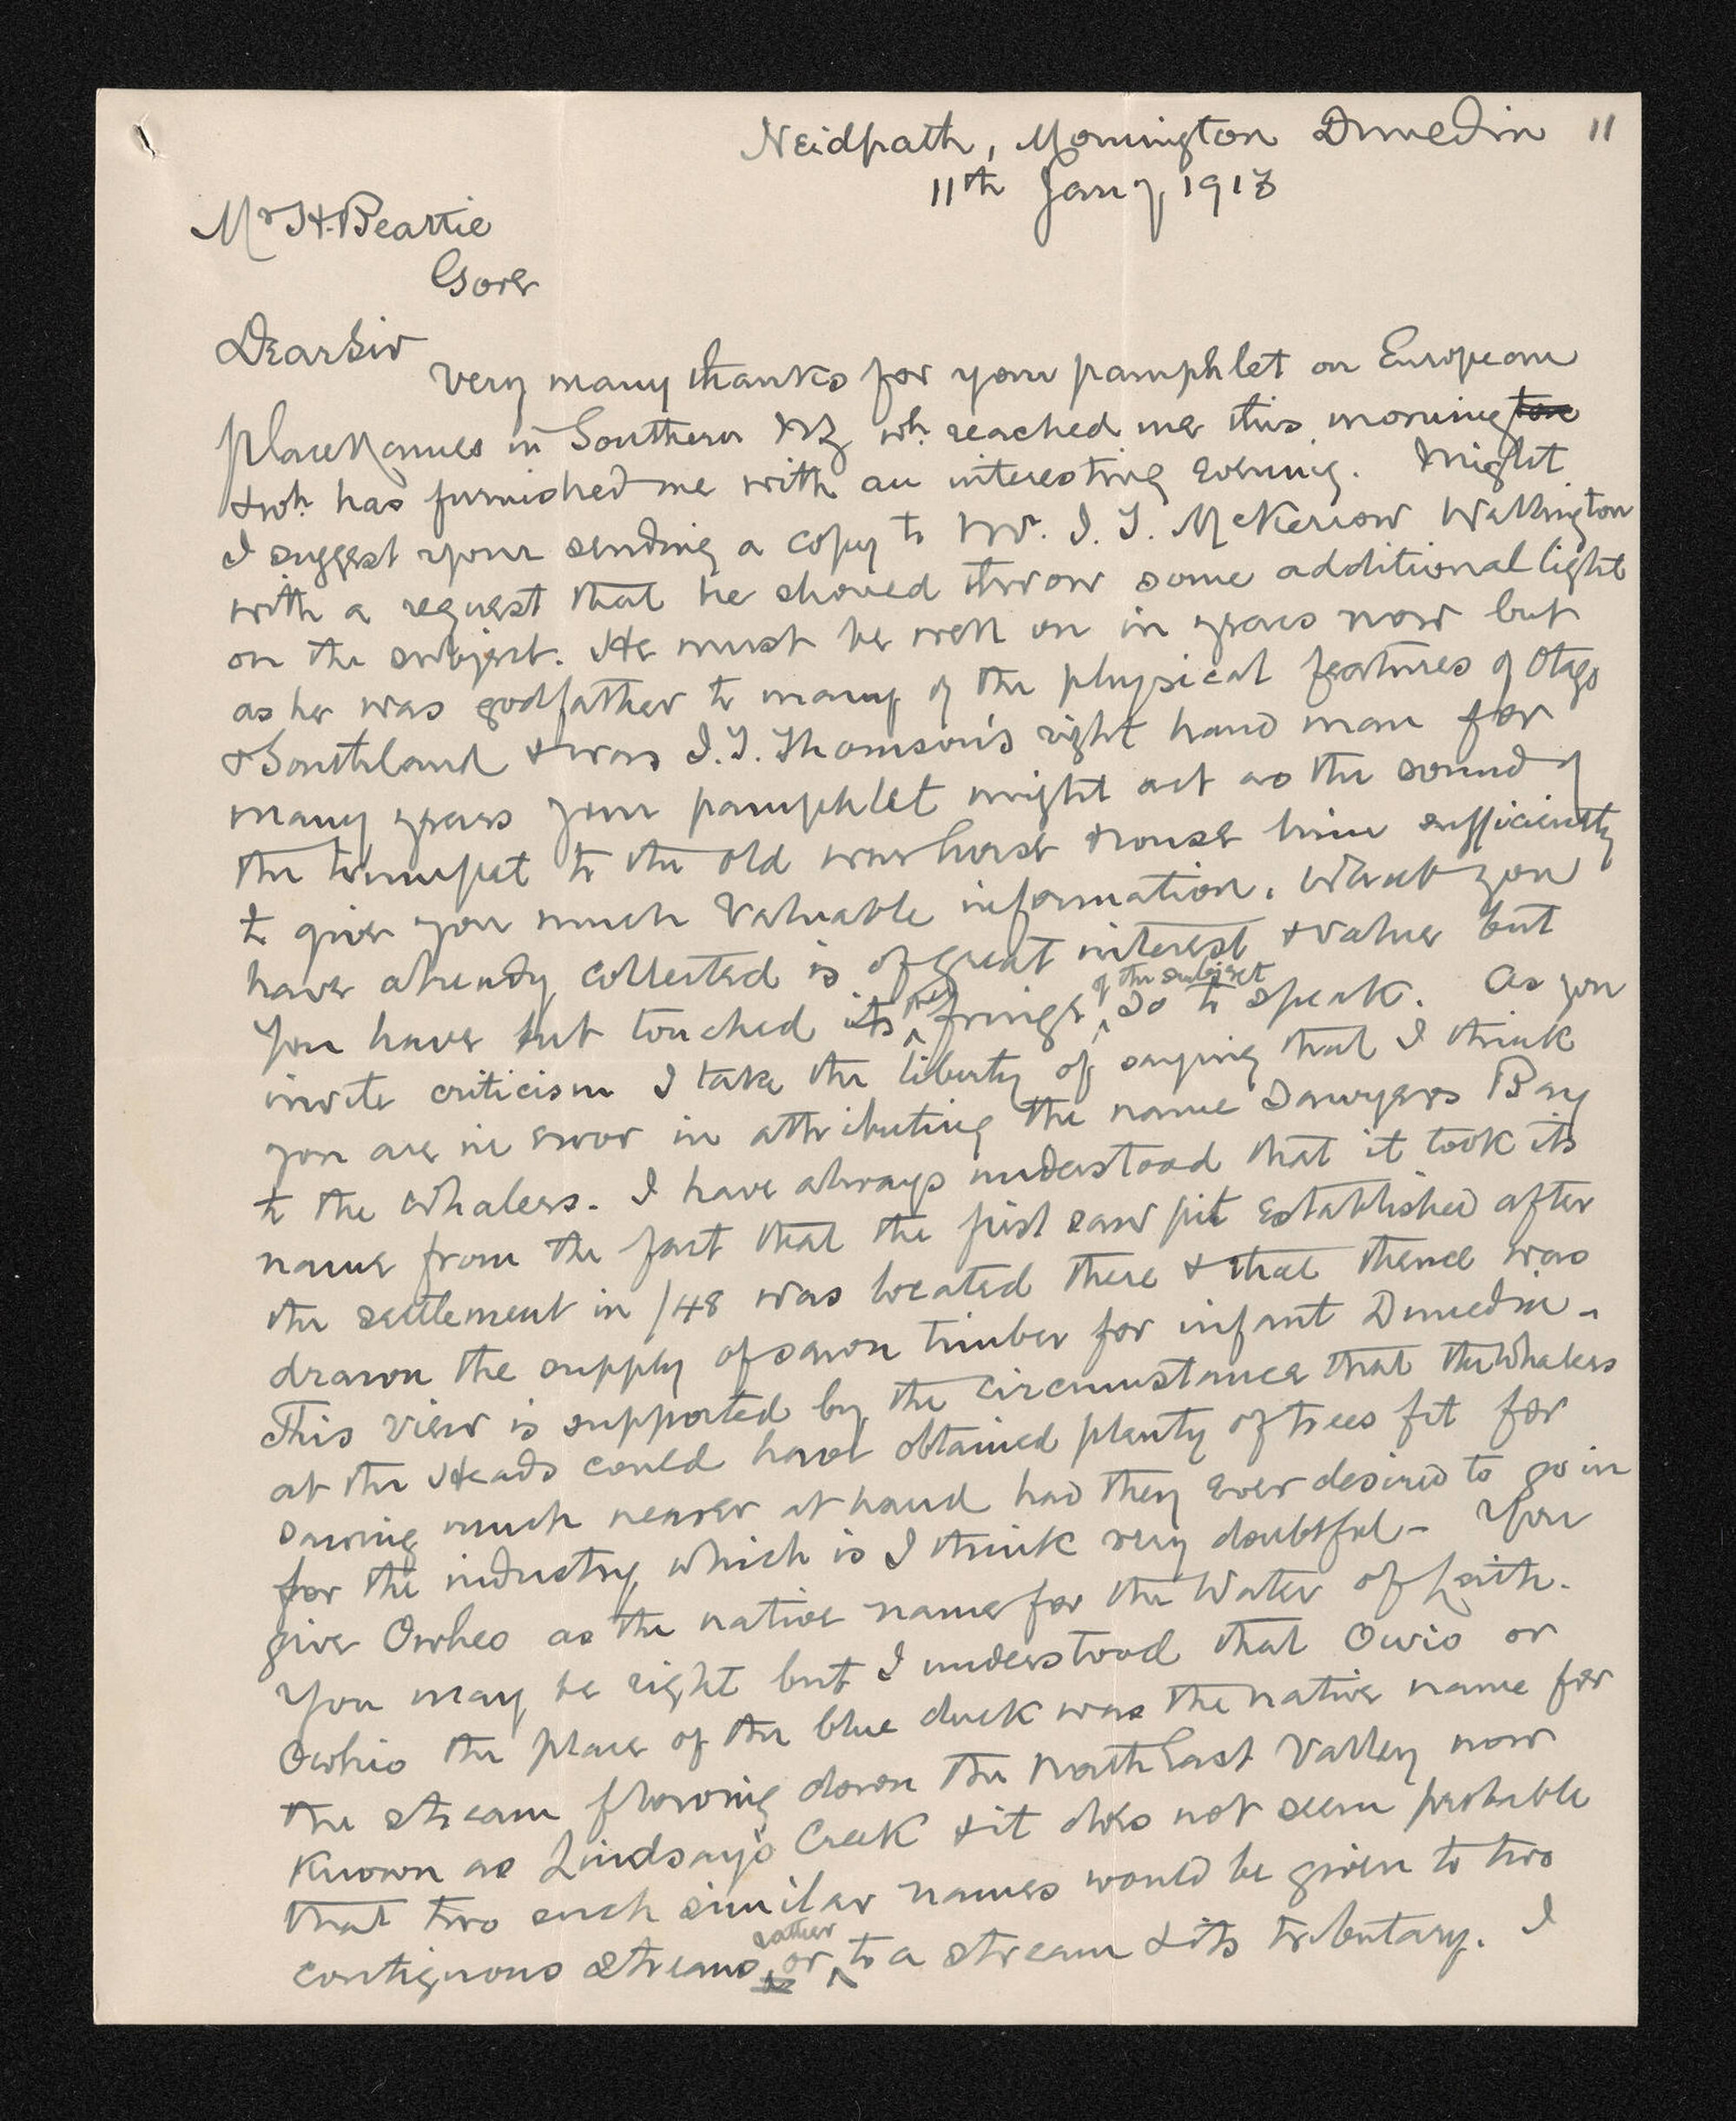 Neidpath, Mornington Dunedin 11
11th Jany 1913
Mr H. Beattie
Gore
Dear Sir
Very many thanks for your pamphlet on European
Place Names in Southern NZ wh. reached me this morning
& wh. has furnished me with an interesting evening. Might
I suggest your sending a copy to Mr. J. T. McKerrow Wellington
with a request that he should throw some additional light
on the subject. He must be well on in years now but
as he was godfather to many of the physical features of Otago
& Southland & was J. T. Thomson's right hand man for
many years your pamphlet might act as the sound of
the trumpet to the old war horse & rouse him sufficiently
to give you much valuable information. What you
have already collected is of great interest & value but
you have but touched its the fringe of the subject so to speak. As you
invite criticism I take the liberty of saying that I think
you are in error in attributing the name Sawyers Bay
to the Whalers. I have always understood that it took its
name from the fact that the first saw pit established after
the settlement in /48 was located there & that thence was
drawn the supply of sawn timber for infant Dunedin -
This view is supported by the circumstance that the Whalers
at the Heads could have obtained plenty of trees fit for
sawing much nearer at hand had they ever desired to go in
for the industry which is I think very doubtful - You
give Owheo as the native name for the Water of Leith.
You may be right but I understood that Owio or
Owhio the place of the blue duck was the native name for
the stream flowing down the North East Valley now
known as Lindsay's Creek & it does not seem probable
that two such similar names would be given to two
contiguous streams or rather to a stream & its tributary. I